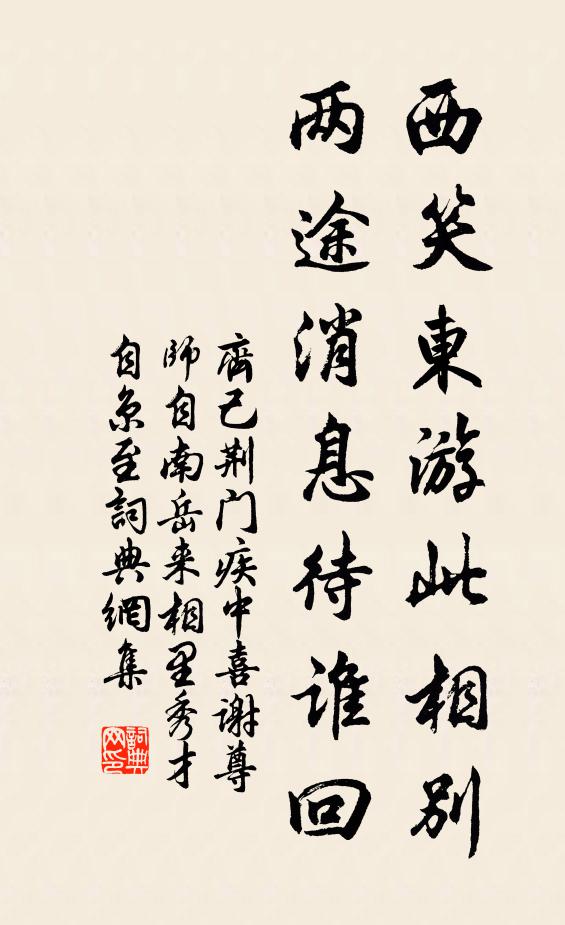 西笑東游此相别
两途消息待谁回
齊己荆门疾中喜谢尊
師自南岳来相里秀才
自京至詞典網集
詞典网印